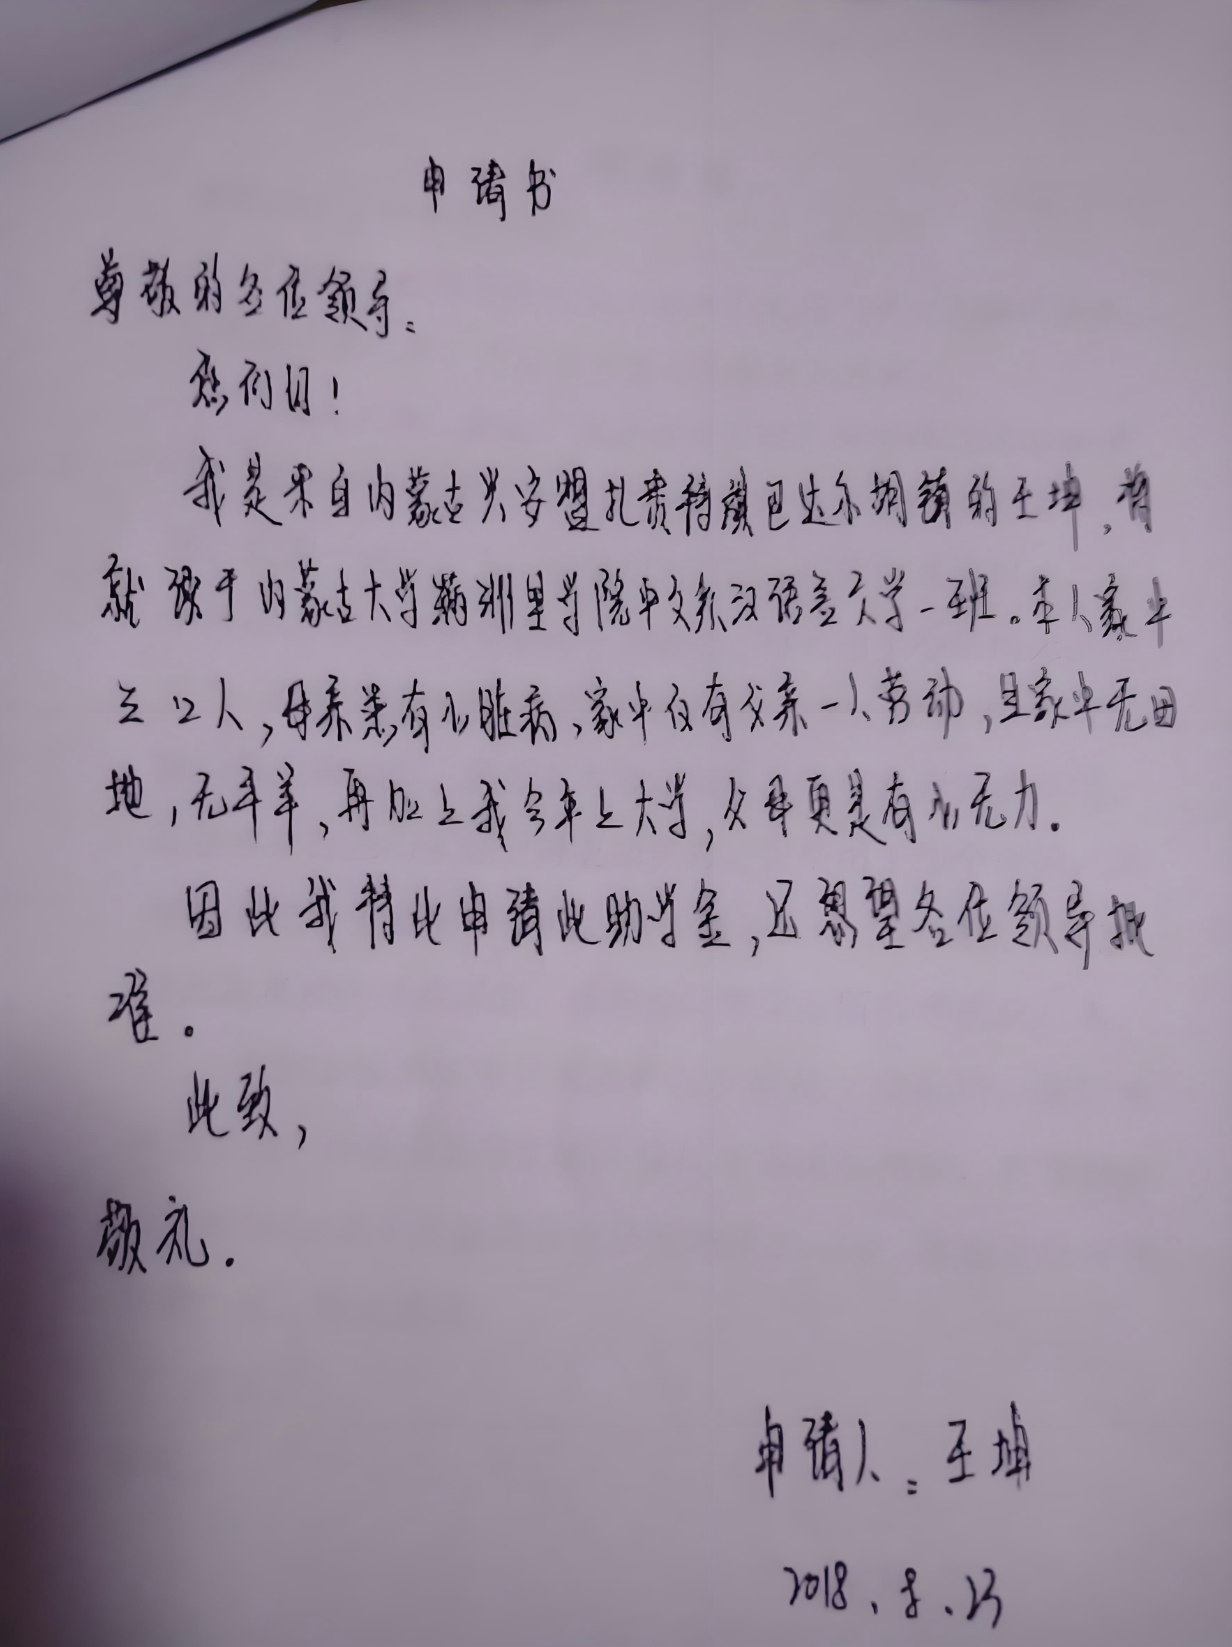 申请书
尊敬的各位领导：
您们好！
我是来自内蒙古兴安盟扎赉特旗巴达尔胡镇的王坤，
就读于内蒙古大学满洲里学院中文系汉语言文学一班。本人家中
三口人，母亲患有心脏病，家中仅有父亲一人劳动，且家中无田
地，无牛羊，再加上我今年上大学，父母更是有心无力.
因此我特此申请此助学金，还恳望各位领导批
准。
此致，
敬礼.
申请人：王坤
2018.8.23